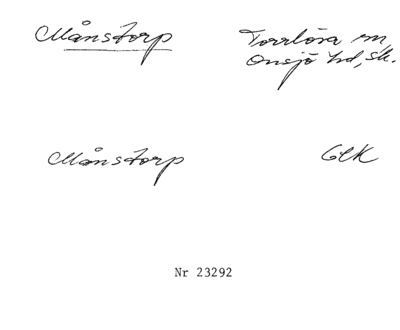 Månstorp
Torrlösa sn,
Onsjö hd, Sk.
Månstorp
GEK
Nr 23292